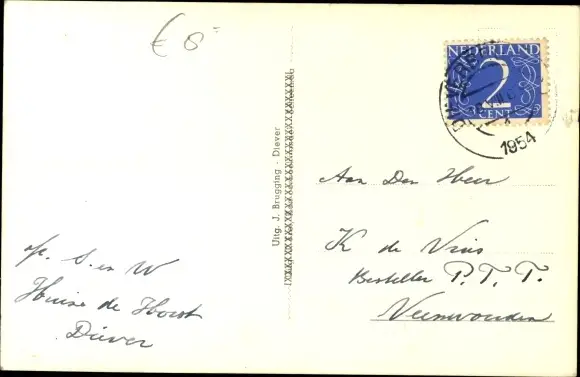 € 8=
NEDERLAND
2
CENT
1954
Uitg. J. Brugging - Diever
Aan Den Heer
K de Vries
Besteller P.T.T.
Veenwouden
afz. S. en W
Huize de Horst
Diever